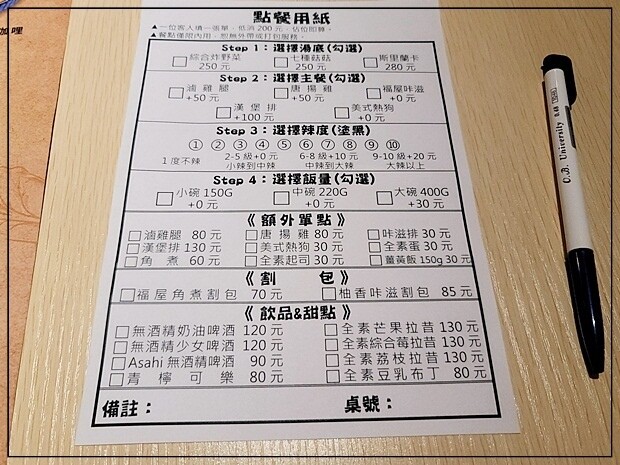 咖哩
點餐用紙
▲一位客人填一張單，低消200元，佔位即算。
▲餐點僅限內用，恕無外帶或打包服務。
Step 1：選擇湯底(勾選)
□綜合炸野菜 250元 □七種菇菇 250元 □斯里蘭卡 280元
Step 2：選擇主餐(勾選)
□滷雞腿 +50元 □唐揚雞 +50元 □福屋咔滋 +0元
□漢堡排 +100元 □美式熱狗 +0元
Step 3：選擇辣度(塗黑)
① ② ③ ④ ⑤ ⑥ ⑦ ⑧ ⑨ ⑩
1度不辣 2-5級+0元 小辣到中辣 6-8級+10元 中辣到大辣 9-10級+20元 大辣以上
Step 4：選擇飯量(勾選)
□小碗150G +0元 □中碗220G +0元 □大碗400G +30元
《額外單點》
□滷雞腿 80元 □唐揚雞 80元 □咔滋排 30元
□漢堡排 130元 □美式熱狗 30元 □全素蛋 30元
□角煮 60元 □全素起司 30元 □薑黃飯150g 30元
《割包》
□福屋角煮割包 70元 □柚香咔滋割包 85元
《飲品&甜點》
□無酒精奶油啤酒 120元 □全素芒果拉昔 130元
□無酒精少女啤酒 120元 □全素綜合莓拉昔 130元
□Asahi無酒精啤酒 90元 □全素荔枝拉昔 130元
□青檸可樂 80元 □全素豆乳布丁 80元
備註： 桌號：
O.B. University 0.6